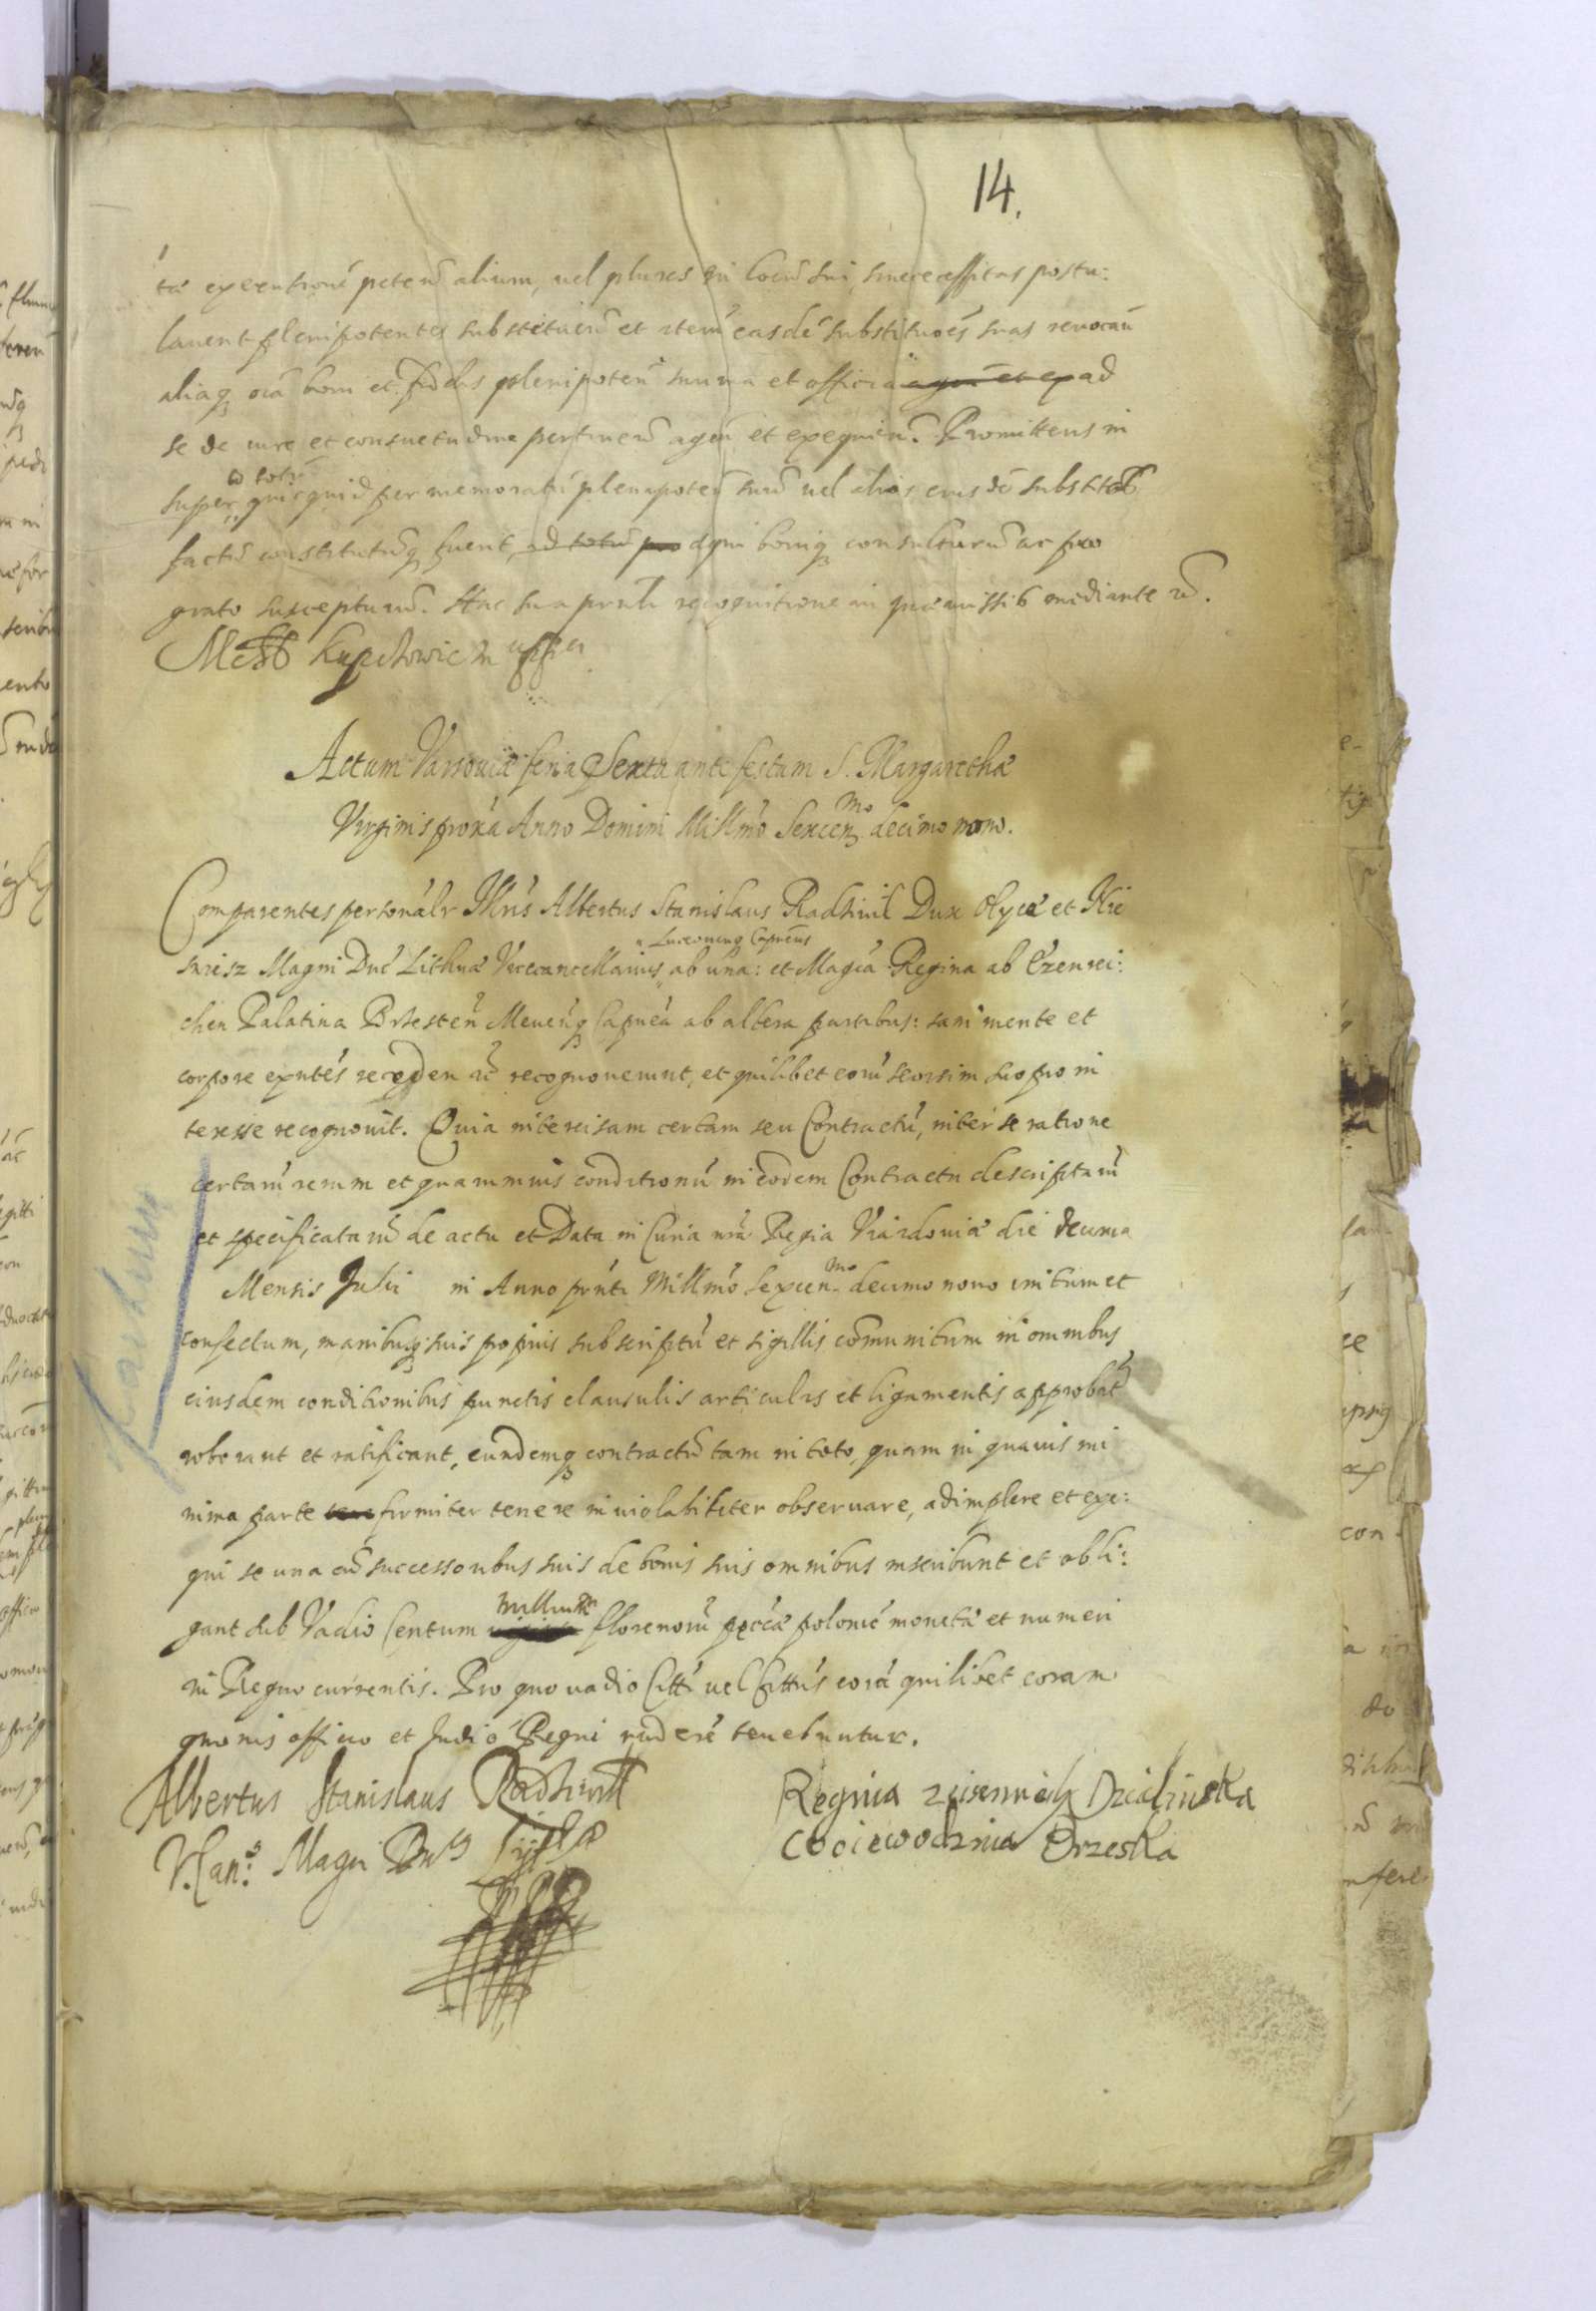 14.
executionē petenď alium, vel plures in locū sui, si necessitas postu:
lauerit plenipotentes substituenď et iterū easdē substituōēs suas reuocań
aliaq̨ oīa boni et fidelis plenipotenť munia et officia agen et ex ad
se de iure et consuetudine pertinenď agen et exequenď. Promittens in
id totū
super quicquid per memoratū plenipoteń suū vel alios eius dē substitos
factū constitutūq̨ fuerit, id totū pro aequi boniq̨ consulturū ac pro
grato suscepturū. Hac sua pnti recognitione in praemissib mediante rē.
Actum Varsouiæ feria Sexta ante festum S. Margarethæ
Virginis proxa Anno Domini Millmō Sexcen mo decimo nono.
Comparentes personalr Illris Albertus Stanislaus Radziwil Dux Olycæ et Nie
swiesz Magni Duc Lithuæ Vicecancellarius ab una: et Magca Regina ab Ezenrei:
chen Palatina Brzesteń Meueńq̨ Capnea ab altera partibus: sani mente et
corpore exntes receden rē recognouerunt, et quilibet eorū seorsim suo pro in
teresse recognouit. Quia intercisam certam seu Contractū, inter se ratione
certarū rerum et quarumuis conditionū in eodem Contractu descriptarū
et specificatarū de actu et Data in Curia nrā Regia Viasdouiæ die decima
Mensis Julii in Anno pnti Millmō Sexcen mo decimo nono initum et
confectum, manibusq̨ suis propriis subscriptū et sigillis cōmunitum in omnibus
eiusdem conditionibus punctis clausulis articulis et ligamentis approbāt
roborant et ratificant, eundemq̨ contractū tam in toto, quam in quauis mi
nima parte tene firmiter tenere inuiolabiliter obseruare, adimplere et exe:
qui se una cū successoribus suis de bonis suis omnibus inscribunt et obli:
gant sub Vadio Centum millium florenorū pecæ polonic monetæ et numeri
in Regno currentis. Pro quo vadio Citti vel Cittus eorū quilibet coram
quouis officio et Judio Regni rndere tenebuntur.
Albertus Stanislaus Radziwił
V. Can: Magni Du
Regina Dzialinska
Woiewodzina Brzeska